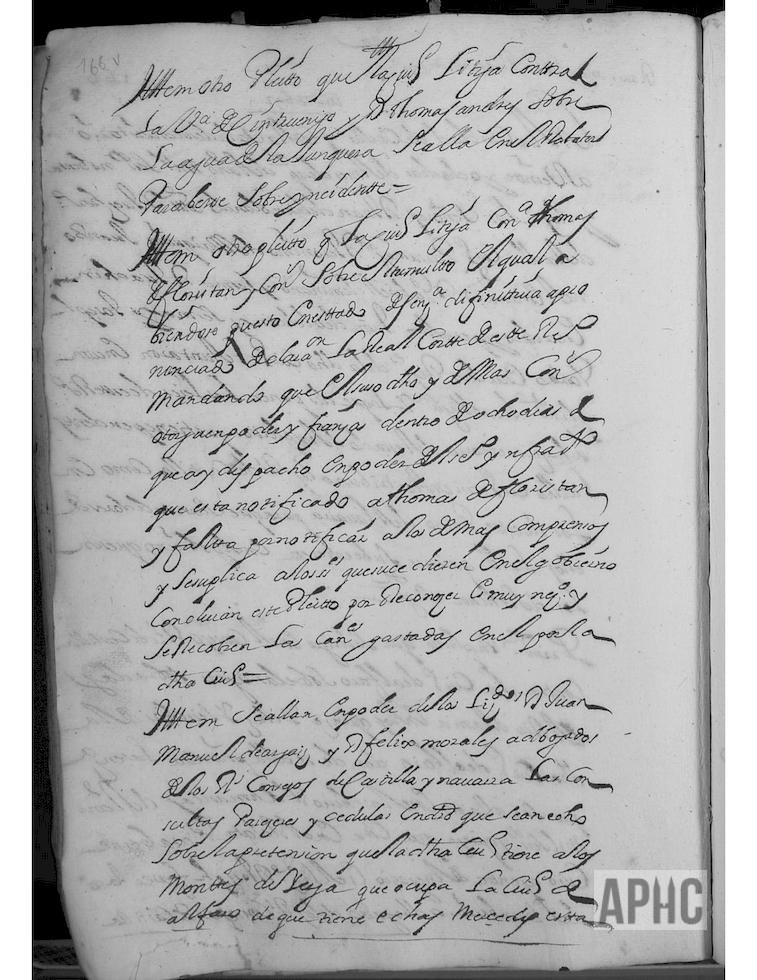 166v
Ittem otro Pleitto que la ciud. litija Conttra
la Va. de Cintruenigo y Dn. thomas andres sobre
la agua de la Se alla en el
Para berse sobre yncidentte =
Ittem otro pleitto q la ciud. litija Cona. thomas
de floristan y Cons. Sobre el tumultto El qual a
biendose puesto en esttado de sena. difinittiua a pro
nunciado la Real Cortte de este Reo.
Mandando que El suso dho y demas Cons.
y franjas dentro de ocho dias
que ay despacho en poder del
que esta notificado a thomas de floristan
y faltta por notificar a los demas Comprensos
y se suplica a los ss. que sucedieren En el gobierno
Concluian este Pleitto por Reconozer Es muy nezo. y
se Recobren las Canes. gastadas en el por la
dha Ciud. =
Ittem Se allan en poder de los Lizdos. Dn. Juan
Manuel de y Dn. felix morales adbogados
de los Rs. Consejos de Castilla y nauarra las Con
sultas Pareceres y cedulas que se an echo
Sobre la pretension que la dha Ciud. tiene a los
Monttes de Yerga que ocupa la Ciud. de
alfaro de que tiene echas Mercedes esta
APHC